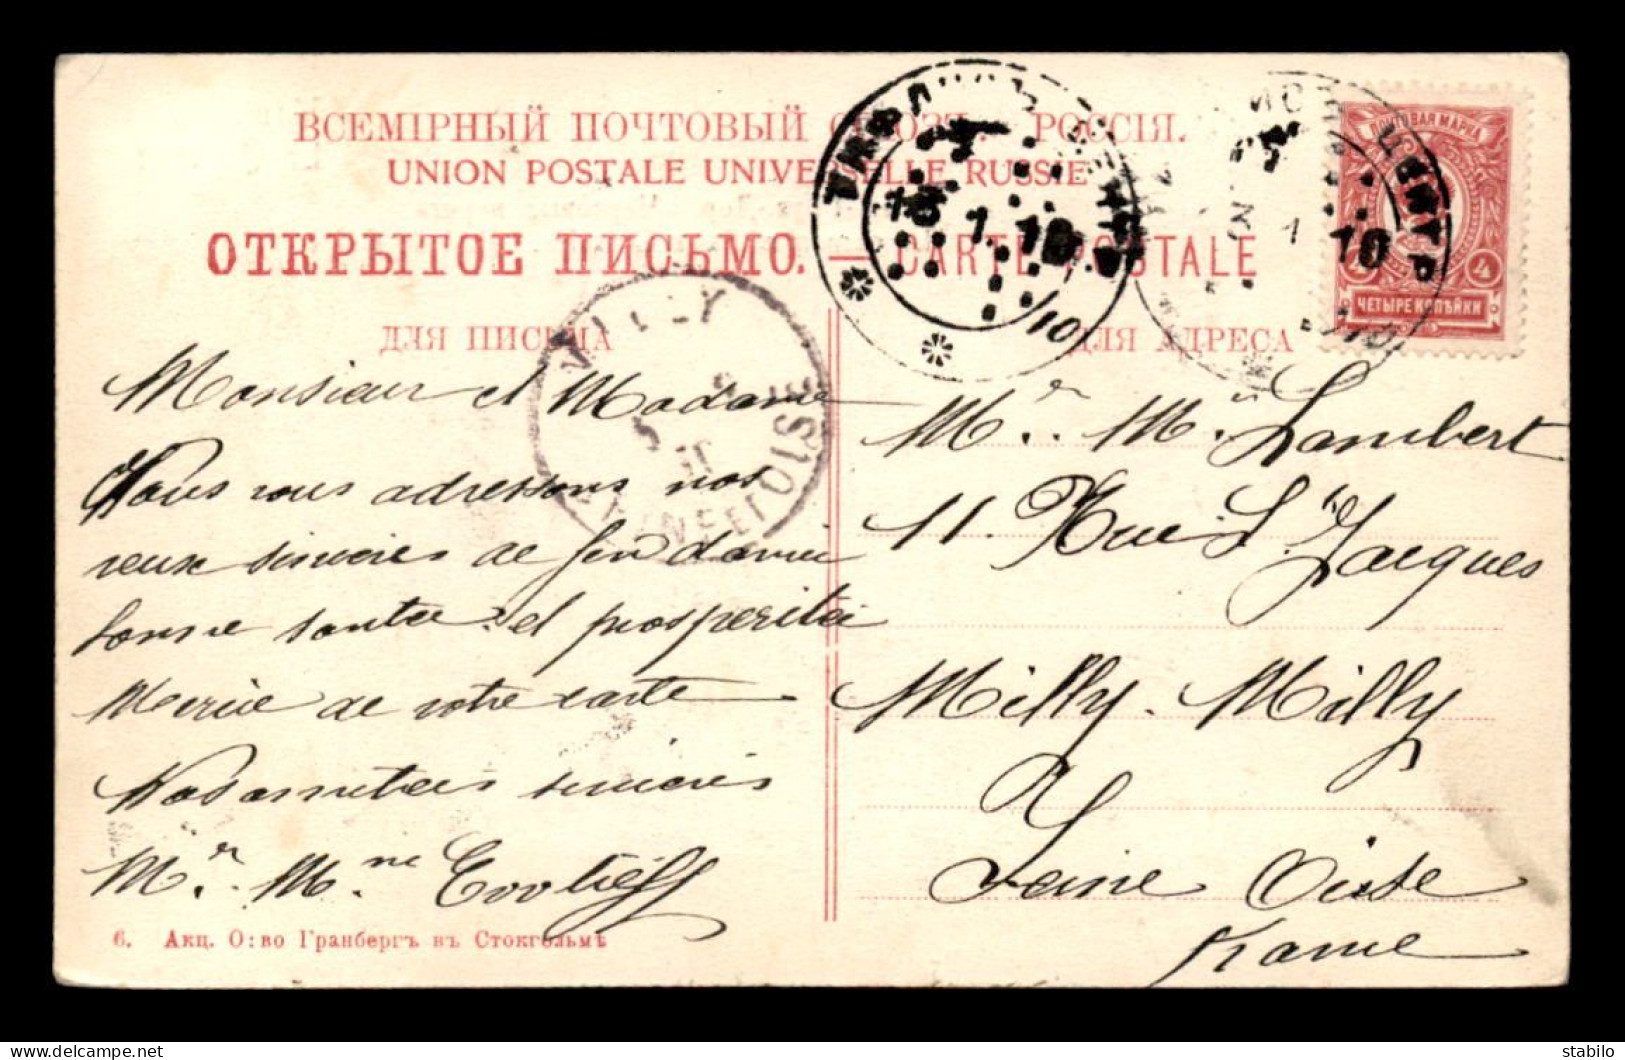 ВСЕМІРНЫЙ ПОЧТОВЫЙ СОЮЗЪ. РОССІЯ.
UNION POSTALE UNIVERSELLE RUSSIE
ОТКРЫТОЕ ПИСЬМО. — CARTE POSTALE
ДЛЯ ПИСЬМА
ДЛЯ АДРЕСА
ТИФЛИСЪ
13 1 10
10
ПОЧТОВАЯ МАРКА
4 4
ЧЕТЫРЕ КОПѢЙКИ
MILLY
SEINE ET OISE
Monsieur et Madame
Nous vous adressons nos
veux sincères de
bonne santée et prosperitée
Mercie de votre carte
Nos amitées sincères
Mr. Mme
Mr. Ms. Lambert
11. Rue St Jacques
Milly. Milly
Seine Oise
France
6. Акц. О:во Гранбергъ въ Стокгольмѣ
stabilo